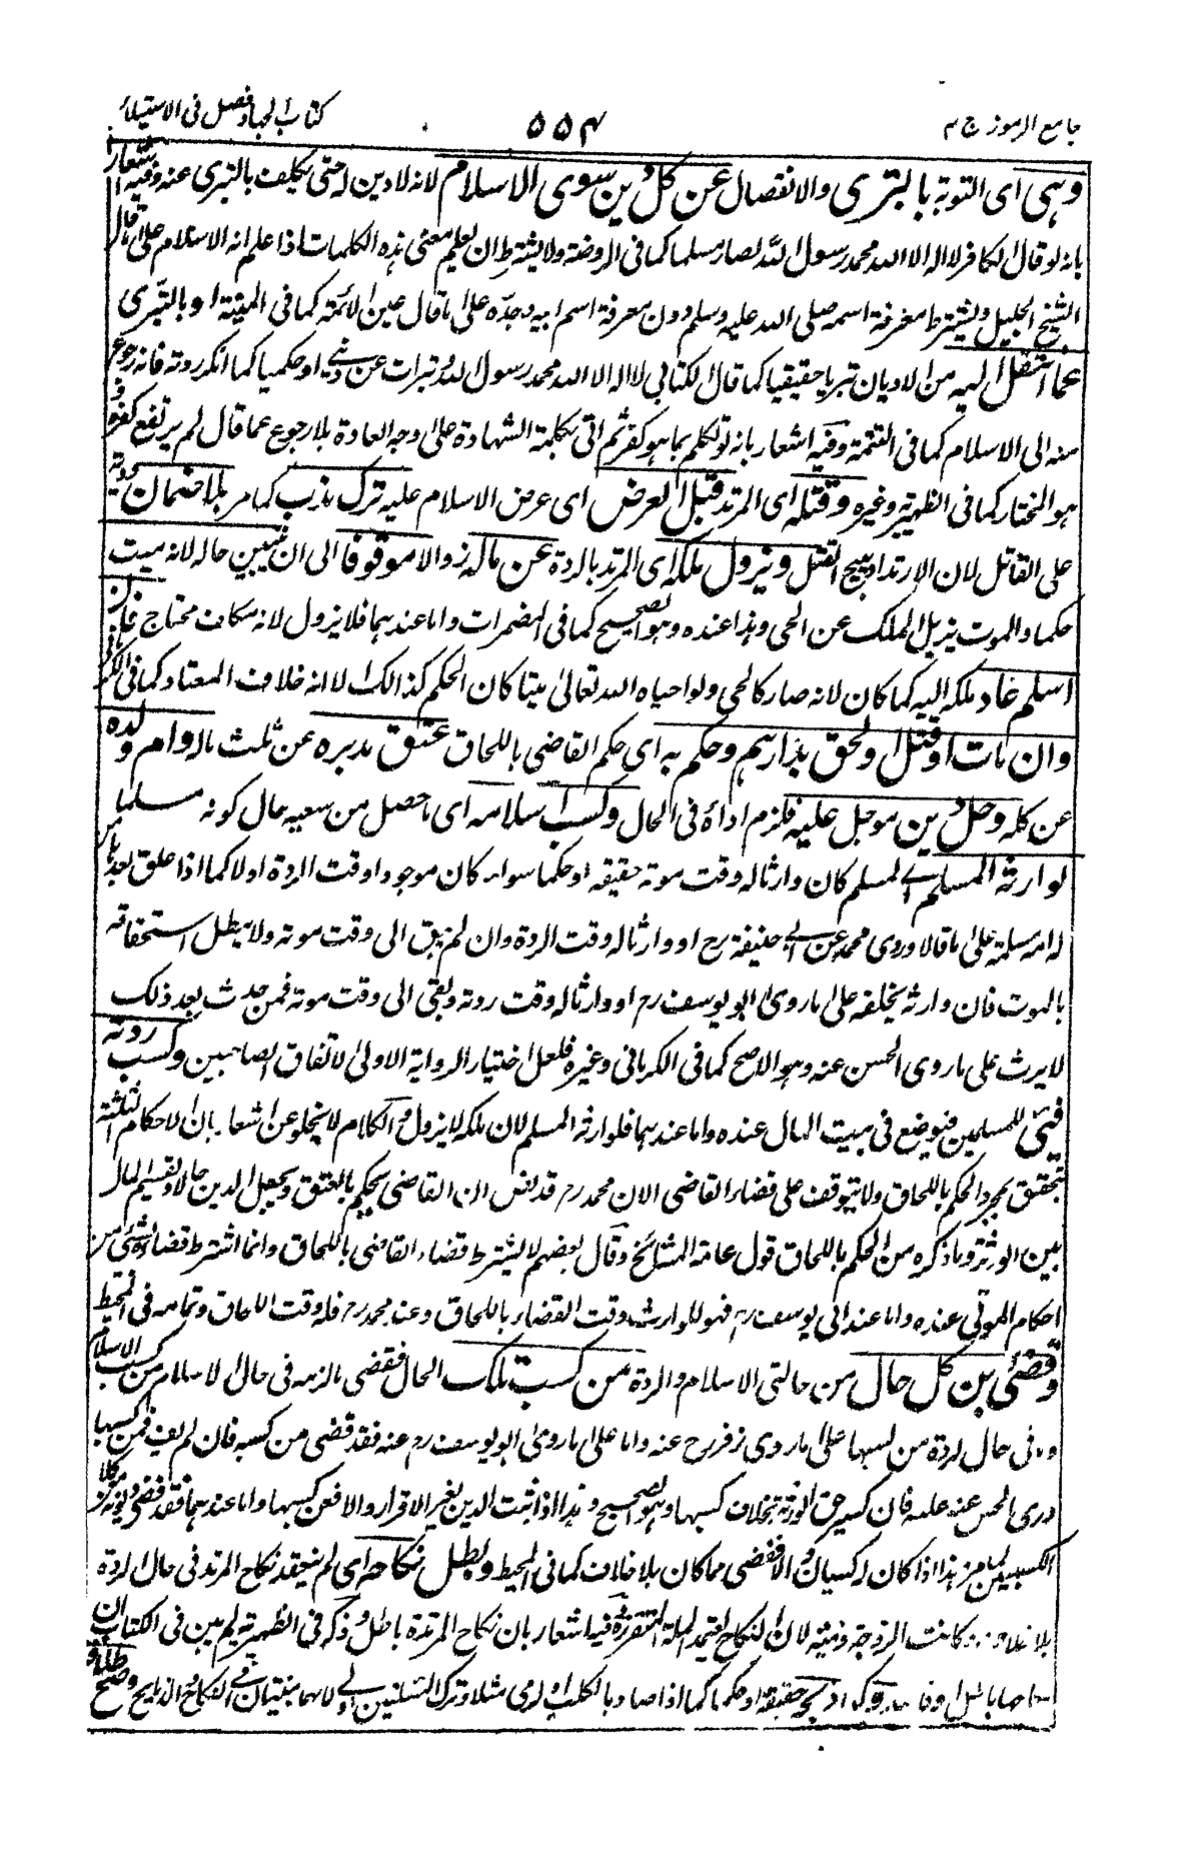 جامع الرموز ج ٢
٥٥٢
كتاب الجهاد فصل فى الاستيلاء
وهى اى التوبة بالتبرى والانفصال عن كل دين سوى الاسلام لانه لادين له حتى يكلف بالتبرى عنه وفيه اشعار
بانه لو قال الكافر لا اله الا الله محمد رسول الله لصار مسلما كما فى الروضة ولا يشترط ان يعلم معنى هذه الكلمات اذا علم انه الاسلام على ما قال
الشيخ الجليل ويشترط معرفة اسمه صلى الله عليه وسلم دون معرفة اسم ابيه وجده على ما قال عين الائمة كما فى المنية او بالتبرى
عما انتقل اليه من الاديان تبريا حقيقيا كما قال الكتابى لا اله الا الله محمد رسول الله وتبرات عن دينى او حكميا كما انكر ردته فانه رجوع
منه الى الاسلام كما فى التتمة وفيه اشعار بانه لو تكلم بما هو كفر ثم اتى بكلمة الشهادة على وجه العادة بلا رجوع عما قال لم يرتفع كفره و
هو المختار كما فى الظهيرية وغيره وقتله اى المرتد قبل العرض اى عرض الاسلام عليه ترك ندب كما مر بلا ضمان دية
على القاتل لان الارتداد يبيح القتل ويزول ملكه اى المرتد بالردة عن ماله زوالا موقوفا الى ان يتبين حاله لانه ميت
حكما والموت يزيل الملك عن الحى وهذا عنده وهو الصحيح كما فى المضمرات واما عندهما فلا يزول لانه مكلف محتاج فان
اسلم عاد ملكه اليه كما كان لانه صار كالحى ولو احياه الله تعالى ميتا كان الحكم كذالك الا انه خلاف المعتاد كما فى الكرمانى
وان مات او قتل او لحق بدارهم وحكم به اى حكم القاضى باللحاق عتق مدبره عن ثلث ماله وام ولده
عن كله وحل دين مؤجل عليه فلزم اداؤه فى الحال وكسب اسلامه اى ما حصل من سعيه حال كونه مسلما
لوارثه المسلم اى لمسلم كان وارثا له وقت موته حقيقة او حكما سواء كان موجودا وقت الردة او لا كما اذا علق بعدها من
له امة مسلمة على ما قالا وروى محمد عن ابى حنيفة رح او وارثا له وقت الردة وان لم يبق الى وقت موته ولا يبطل استحقاقه
بالموت فان وارثه يخلفه على ما روى ابو يوسف رح او وارثا له وقت ردته وبقى الى وقت موته فمن حدث بعد ذلك
لا يرث على ما روى الحسن عنه وهو الاصح كما فى الكرمانى وغيره فلعل اختيار الرواية الاولى لاتفاق الصاحبين وكسب ردته
فيئ للمسلمين فيوضع فى بيت المال عنده واما عندهما فلوارثه المسلم لان ملكه لا يزول والكلام لا يخلو عن اشعار بان الاحكام الثلثة
تتحقق بمجرد الحكم باللحاق ولا يتوقف على قضاء القاضى الا ان محمد رح قد نص ان القاضى يحكم بالعتق ويجعل الدين حالا ويقسم المال
بين الورثة وما ذكره من الحكم باللحاق قول عامة المشائخ وقال بعضهم لا يشترط قضاء القاضى باللحاق وانما اشترط قضاؤه بشئ من
احكام الموتى عنده واما عند ابى يوسف رح فهو للوارث وقت القضاء باللحاق وعند محمد رح فله وقت اللحاق وتمامه فى المحيط
وقضى دين كل حال من حالتى الاسلام والردة من كسب تلك الحال فقضى ما لزمه فى حال الاسلام من كسب الاسلام
وما فى حال الردة من كسبها على ما روى زفر رح عنه واما على ما روى ابو يوسف رح عنه فقد قضى من كسبه فان لم يف فمن كسبها
وروى الحسن عنه عكسه فان كسبه حق الورثة بخلاف كسبها وهو الصحيح وهذا اذا ثبت الدين بغير الاقرار والا فمن كسبها واما عندهما فقد قضى ديونه من كلا
الكسبين لما مر هذا اذا كان له كسبان والا فقضى مما كان بلا خلاف كما فى المحيط وبطل نكاحه اى لم ينعقد نكاح المرتد فى حال الردة
بلا خلاف كانت الزوجة لان النكاح يعتمد الملة المتقررة ففيه اشعار بان نكاح المرتدة باطل وذكره فى الظهيرية لم يبين فى الكتاب ان
حقيقة او حكما كما اذا صاد بالكلب او رمى مثلا وترك التسمية لانهما مبنيان فى النكاح الذابح وصح طلاقه